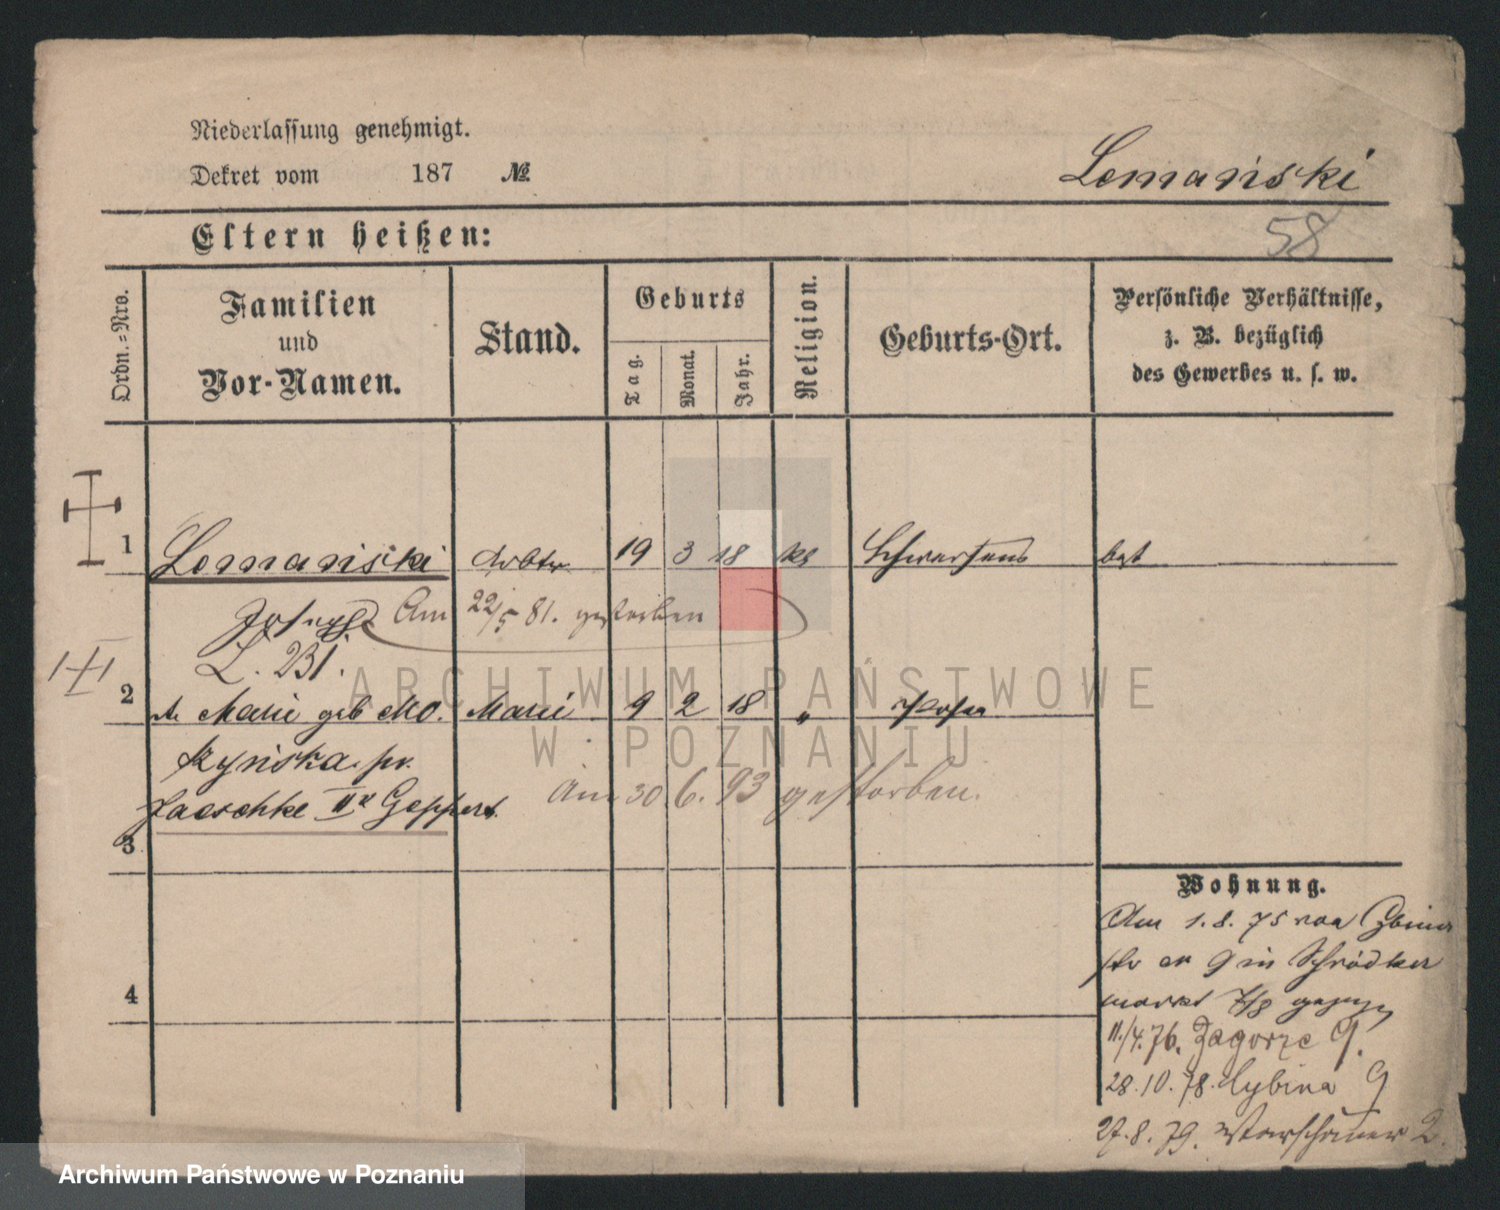 Niederlassung genehmigt.
Dekret vom 187 №
Lemański
58
Eltern heißen:
Ordn.-Nro.
Familien
und
Vor-Namen.
Stand.
Geburts
Tag.
Monat.
Jahr.
Religion.
Geburts-Ort.
Persönliche Verhältnisse,
z. B. bezüglich
des Gewerbes u. s. w.
1 Lemański Arbtr 19 3 18 kt Schwersenz
Joseph Am 22/5 81. gestorben
L. 231.
2 Marie geb Mo. 9 2 18 " Posen
szyńska pr.
Jaeschke II r Geppert
Am 30 6. 93 gestorben.
3
4
Wohnung.
Am 1. 8. 75 von Cybina
str 9 in Schrodker
markt 7/8 gezogen
11./4. 76. Zagorze 9.
28. 10. 78. Cybina 9
27. 8. 79. Warschauer 2.
ARCHIWUM PAŃSTWOWE
W POZNANIU
Archiwum Państwowe w Poznaniu